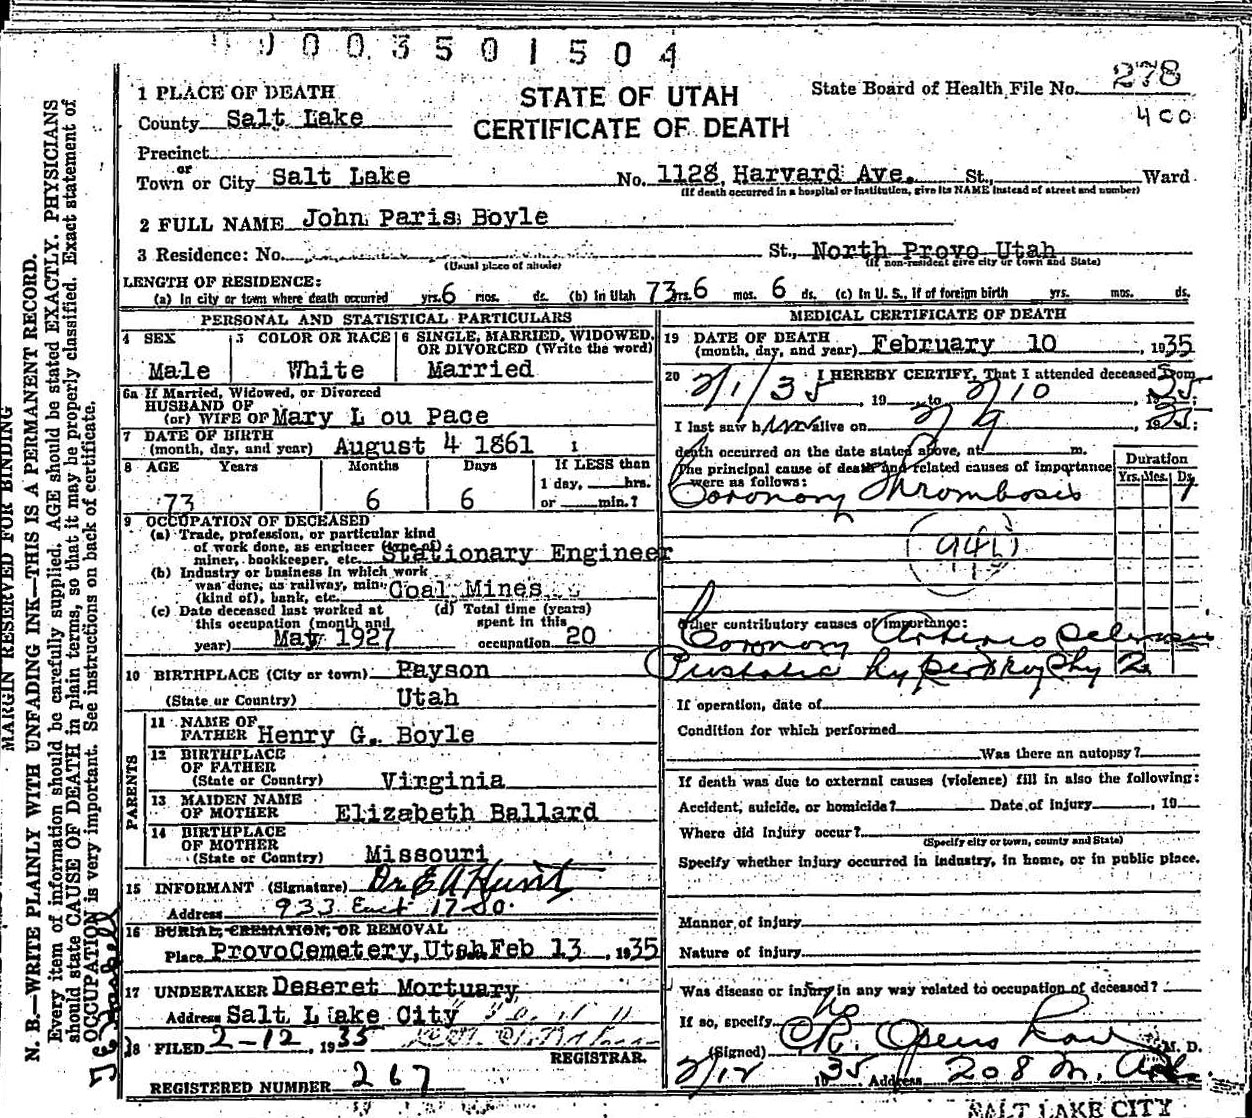 0 0 3 5 0 1 5 0 4
STATE OF UTAH
CERTIFICATE OF DEATH
State Board of Health File No. 278
400
1 PLACE OF DEATH
County Salt Lake
Precinct
or
Town or City Salt Lake No. 1128 Harvard Ave. St., Ward
(If death occurred in a hospital or institution, give its NAME instead of street and number)
2 FULL NAME John Paris Boyle
3 Residence: No. St., North Provo Utah
(Usual place of abode) (If non-resident give city or town and State)
LENGTH OF RESIDENCE:
(a) In city or town where death occurred yrs. 6 mos. ds. (b) In Utah 73 yrs. 6 mos. 6 ds. (c) In U. S., if of foreign birth yrs. mos. ds.
PERSONAL AND STATISTICAL PARTICULARS
4 SEX
Male
5 COLOR OR RACE
White
6 SINGLE, MARRIED, WIDOWED,
OR DIVORCED (Write the word)
Married
6a If Married, Widowed, or Divorced
HUSBAND OF
(or) WIFE OF Mary L ou Pace
7 DATE OF BIRTH
(month, day, and year) August 4 1861
8 AGE Years Months Days If LESS than
1 day, hrs.
73 6 6 or min.?
9 OCCUPATION OF DECEASED
(a) Trade, profession, or particular kind
of work done, as engineer (type of)
miner, bookkeeper, etc. Stationary Engineer
(b) Industry or business in which work
was done, as railway, mine
(kind of), bank, etc. Coal Mines
(c) Date deceased last worked at (d) Total time (years)
this occupation (month and spent in this
year) May 1927 occupation 20
10 BIRTHPLACE (City or town) Payson
(State or Country) Utah
PARENTS
11 NAME OF
FATHER Henry G. Boyle
12 BIRTHPLACE
OF FATHER
(State or Country) Virginia
13 MAIDEN NAME
OF MOTHER Elizabeth Ballard
14 BIRTHPLACE
OF MOTHER
(State or Country) Missouri
15 INFORMANT (Signature) Dr E A Hunt
Address 933 East 17 So.
16 BURIAL, CREMATION, OR REMOVAL
Place ProvoCemetery, Utah Feb 13, 1935
17 UNDERTAKER Deseret Mortuary
Address Salt Lake City
18 FILED 2-12, 1935
REGISTRAR.
REGISTERED NUMBER 267
MEDICAL CERTIFICATE OF DEATH
19 DATE OF DEATH
(month, day, and year) February 10, 1935
20 I HEREBY CERTIFY, That I attended deceased from
2/1/35, 19 to 2/10, 1935;
I last saw him alive on 2/9, 1935;
death occurred on the date stated above, at m.
The principal cause of death and related causes of importance
were as follows:
Duration
Yrs. Mos. Ds.
Coronary Thrombosis 9
94b
Other contributory causes of importance:
Coronary Arterio Sclerosis
Prostatic hypertrophy 2
If operation, date of
Condition for which performed
Was there an autopsy?
If death was due to external causes (violence) fill in also the following:
Accident, suicide, or homicide? Date of injury, 19
Where did injury occur?
(Specify city or town, county and State)
Specify whether injury occurred in industry, in home, or in public place.
Manner of injury
Nature of injury
Was disease or injury in any way related to occupation of deceased?
If so, specify no
(Signed) M. D.
2/12 1935 Address 208 M. A.
SALT LAKE CITY
MARGIN RESERVED FOR BINDING
N. B.—WRITE PLAINLY WITH UNFADING INK—THIS IS A PERMANENT RECORD.
Every item of information should be carefully supplied. AGE should be stated EXACTLY. PHYSICIANS
should state CAUSE OF DEATH in plain terms, so that it may be properly classified. Exact statement of
OCCUPATION is very important. See instructions on back of certificate.